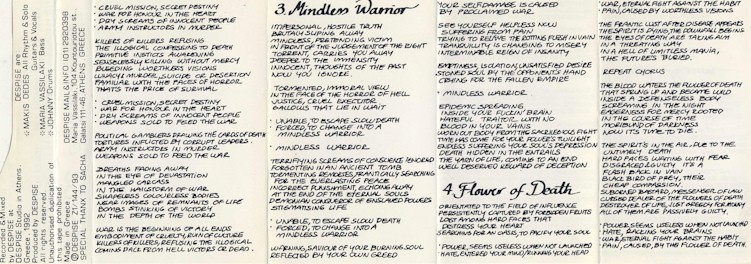 ° CRUEL MISSION, SECRET DESTINY
° WAR FOR HONOUR IN THE HEART
° DRY SCREAMS OF INNOCENT PEOPLE
ARMY INSTRUCTORS IN MURDER.
KILLERS OF KILLERS REFUSING
THE ILLOGICAL CONFESSIONS TO DEATH
PRIMITIVE INSTINCTS AWAKENING
SENSELESSLY KILLING WITHOUT MERCY
BLEEDING WORTHLESS VISIONS
LUNACY MURDER, SUICIDE OF DESERTION
FAMILIAR WITH THE FACES OF HORROR.
THATS THE PRICE OF SURVIVAL
° CRUEL MISSION, SECRET DESTINY
° WAR FOR HONOUR, IN THE HEART
° DRY SCREAMS OF INNOCENT PEOPLE
° WEAPONS SOLD TO FEED THE WAR
POLITICAL GAMBLERS DRAWING THE CARDS OF DEATH
TORTURES INFLICTED BY CORRUPT LEADERS
ARMY INSTRUCTORS IN MURDER
WEAPONS SOLD TO FEED THE WAR.
DREAMS FADING AWAY
IN THE EYE OF DEVASTATION
MANGLED CARCASS
IN THE HISTORY OF WAR,
HARMLESS COUNTLESS BODIES
NEAR IMAGES OF REMNANTS OF LIFE
BOMBS STINKING OF VICTORY
IN THE DEPTH OF THE WORLD
WAR IS THE BEGINNING OF ALL ENDS
EMBODIMENT OF CRUELTY, RUIN OF CULTURE
KILLERS OF KILLERS, REFUSING THE ILLOGICAL
COMING BACK FROM HELL VICTORS OR DEAD.
3. Mindless Warrior
IMPERSONAL, HOSTILE TRUTH
BRUTALY SLIPING AWAY
MINDLESS, PRETENDING VICTIM
IN FRONT OF THE JUDGEMENT OF THE RIGHT
TORRENT, CARRIES YOU AWAY
DEEPER TO THE IMMENSITY
INNOCENT, THOUGHTS OF THE PAST
NOW YOU IGNORE.
TORMENTED, IMMORAL VIEW
IN THE FACE OF THE HORROR OF HELL
JUSTICE, CRUEL EXECUTOR
GALLOWS THAT LIE IN WAIT
° UNABLE, TO ESCAPE SLOW DEATH
° FORCED, TO CHANGE INTO A
° MINDLESS WARRIOR.
° MINDLESS WARRIOR.
TERRIFYING SCREAMS OF CONSCIENCE IGNORED
FORGOTTEN IN AN ANCIENT TOMB
TORMENTING REMORSES, FRANTICALLY SEARCHING
FOR THE EVERLASTING PEACE
INCORRECT PUNISHMENT, ECHOING AWAY
AT THE END OF THE ETERNAL SOULS
DEMONIAN CONQUEROR OF ENSLAVED POWERS
STIGMATISING LIFE
° UNABLE, TO ESCAPE SLOW DEATH
° FORCED, TO CHANGE INTO A
° MINDLESS WARRIOR
WARNING, SAVIOUR OF YOUR BURNING SOUL
REFLECTED BY YOUR OWN GREED
YOUR SELF DAMAGE, IS CAUSED
BY PROCLAIMED WAR.
SEE YOURSELF HELPLESS NOW
SUFFERING FROM PAIN
TRYING TO REDEEM THE ROTTING FLESH IN VAIN
TRANQUILITY IS CHANGING TO MISERY
INTERMINABLE REIGN OF INSANITY
EMPTINESS, ISOLATION, UNSATISFIED DESIRE
STONED SOUL BY THE OPPONENTS HAND
CRYING FOR THE FALLEN EMPIRE
° MINDLESS WARRIOR.
EPIDEMIC SPREADING
INSIDE YOUR FUCKIN' BRAIN
HATEFUL TRAITOR WITH NO
BLOOD IN VEINS
WORN OUT BODY FROM THE SACRILEGIOUS FIGHT
TIME HAS COME FOR YOUR POWERS TONIGHT
ENDLESS SUFFERING YOUR SOUL'S DEPRESSION
DEATH HIDDEN IN THE ENTRAILS
THE YARN OF LIFE, COMING TO AN END
WELL DESERVED REWARD OF DECEPTION
4. Flower of Death
ORIENTATED TO THE FIELD OF INFLUENCE
PERSISTENTLY CAPTURED BY FORBIDDEN FRUITS
LOST AMONG HARD FACES THAT
DISTRESS YOUR HEART
SEARCHING FOR AN OASIS, TO PACIFY YOUR SOUL
° POWER, SEEMS USELESS WHEN NOT LAUNCHED
° HATE, ENTERED YOUR MIND, RUINING YOUR HEAD
° WAR, ETERNAL FIGHT AGAINST THE HABIT
° PAIN, CAUSED BY WORTHLESS VISIONS.
THE FRANTIC LUST AFTER DISEASE APPEARS
THE SPIRIT IS DYING, THE DOWNFALL BEGINS
THE EYES OF DEATH ARE STARING
IN A THREATING WAY
IN A HELL OF LIMITLESS MANIA,
THE FUTURE'S BURIED.
REPEAT CHORUS
THE BLOOD WATERS THE FLOWER OF DEATH
THAT SPRANG UP AND BECAME WILD
INSIDE A DEFENSELESS BODY
SCREAMING IN THE NIGHT
EAGERNESS FOR MERCY ROOTED
IN THE COURSE OF TIME
MORIBUND OF DARKNESS
NOW ITS TIME TO DIE.
THE SPIRITS IN THE AIR, DUE TO THE
UNTIMELY DEATH
HARD FACES WAITING WITH FEAR
DISGRACED, GUILTY IT'S A
FLASH BACK IN VAIN
BLACK BIRD OF PREY, THEIR
CHEAP COMPASSION.
BIGBORNED BASTARD, MESSENGER OF LAW
CURSED DEALER OF THE FLOWERS OF DEATH
DESTROYER OF LIFE, JUST ANARCHY FOR MONEY
ALL OF THEM ARE PASSIVELY GUILTY.
° POWER, SEEMS USELESS WHEN NOT LAUNCHED
° HATE, RACKING YOUR BRAINS
° WAR, ETERNAL FIGHT AGAINST THE HABIT
° PAIN, CAUSED, BY THE FLOWER OF DEATH.
by DESPISE at
Greece 1992
Produced by DESPISE
All Rights Reserved
Unauthorised duplication of
this tape is allowed
Made in Greece
DESPISE IS:
MAKIS DEDES / All Rhythm & Solo
Guitars & Vocals
MARIA VASSILAKI / Bass
JOHNNY / Drums
DESPISE MAIL & INFO: (01) 2920098
SPECIAL THANX TO: SACHA